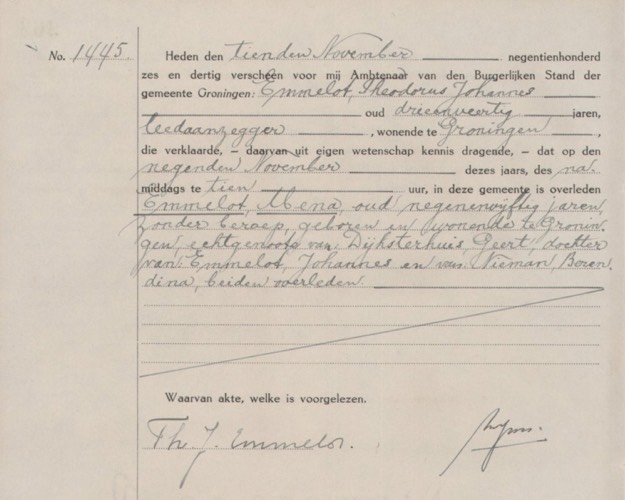 No. 1445.
Heden den tienden November negentienhonderd
zes en dertig verscheen voor mij Ambtenaar van den Burgerlijken Stand der
gemeente Groningen: Emmelot, Theodorus Johannes
oud drieenveertig jaren,
leedaanzegger, wonende te Groningen,
die verklaarde, – daarvan uit eigen wetenschap kennis dragende, – dat op den
negenden November dezes jaars, des na
middags te tien uur, in deze gemeente is overleden
Emmelot, Mena, oud negenenvijftig jaren
zonder beroep, geboren en wonende te Gronin
gen, echtgenoote van: Dijksterhuis, Geert, dochter
van: Emmelot, Johannes en van Nieman, Beren
dina, beiden overleden.
Waarvan akte, welke is voorgelezen.
Th. J. Emmelot.